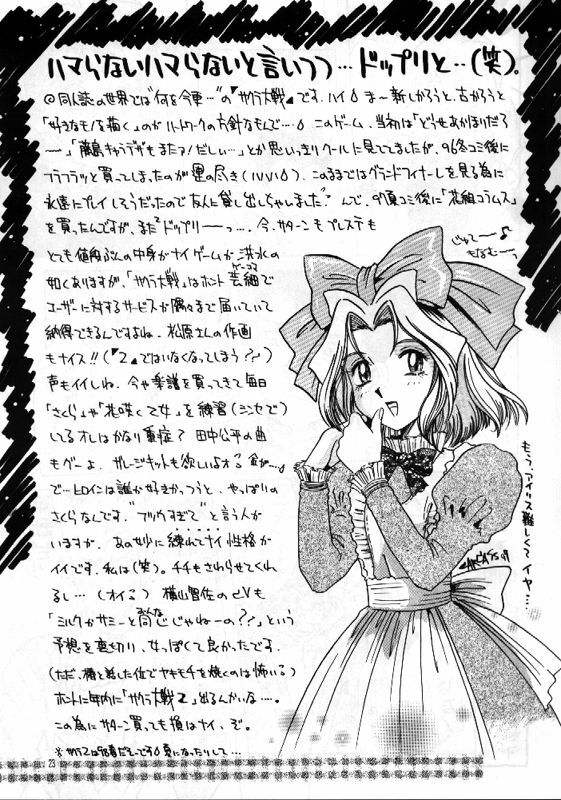 ハマらないハマらないと言いつつ…ドップリと‥(笑)。
◎同人誌の世界では"何を今更…"の『サクラ大戦』です。ハイ◊ ま〜新しかろうと、古かろうと
「好きなモノを描く」のがハートワークの方針なもんで…◊ このゲーム、当初は「どうせあかほりだろ
〜」「藤島キャラデザもまたァ!だしい…」とか思いっきりクールに見てましたが、96冬コミ後に
フラフラッと買ってしまったのが運の尽き(ハハハ◊)。このままではグランドフィナーレを見る為に
永遠にプレイしそうだったので友人に貸し出しちゃいました。んで、97夏コミ後に「花組コラムス」
を買ったんですが、まだドップリ——っ…。今、サターンもプレステも
とても値段ぶんの中身がナイゲームが洪水の
如くありますが、『サクラ大戦』はホント芸細で
ユーザーに対するサービスが隅々まで届いていて
納得できるんですよね。松原さんの作画
もナイス!!(『2』ではいなくなってしまう??)
声もイイしね。今や楽譜を買ってきて毎日
「さくら」や「花咲く乙女」を練習(シンセで)
してるオレはかなり重症? 田中公平の曲
もグーよ、ガレージキットも欲しいよオる 金が…◊
で…ヒロインは誰が好きかっつうと、やっぱりの
さくらなんです。"ブリッ子すぎて"と言う人が
いますが、あの妙に練れてナイ性格が
イイです、私は(笑)。チチもさわらせてくれ
るし…(オイこ) 横山智佐のCVも
「ミルクかサミーと同じじゃねーの??」という
予想を裏切り、女っぽくて良かったです。
(ただ、椿と話した位でヤキモチを焼くのは怖いる)
ホントに年内に『サクラ大戦2』出るんかいな…。
この為にサターン買っても損はナイ、ぞ。
じゅて〜♪
もなむーっ
もう、アイリス難しくてイヤ…
23